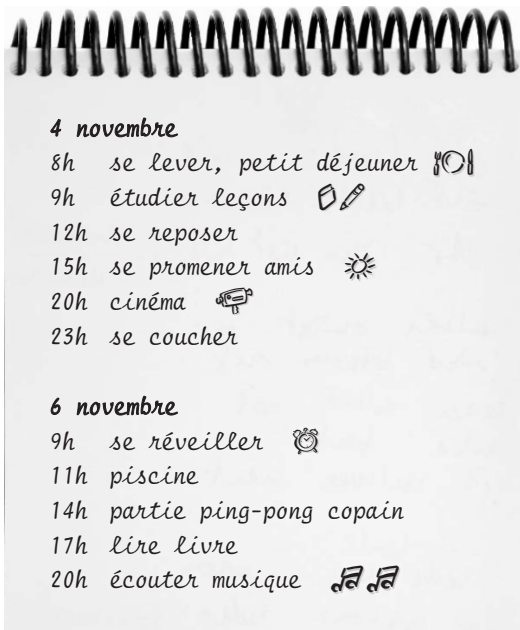 4 novembre
8h se lever, petit déjeuner
9h étudier leçons
12h se reposer
15h se promener amis
20h cinéma
23h se coucher
6 novembre
9h se réveiller
11h piscine
14h partie ping-pong copain
17h lire livre
20h écouter musique